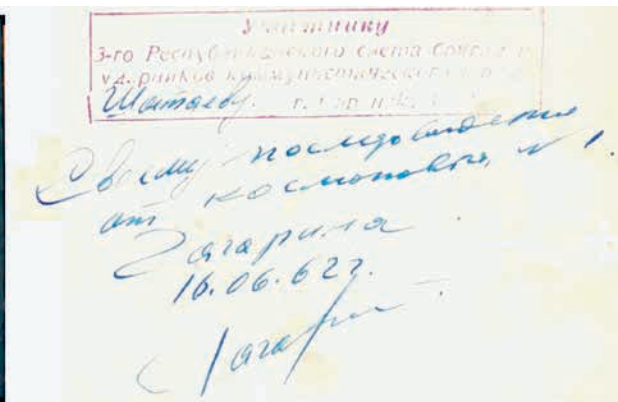 Участнику
3-го Республиканского слета бригад и
ударников коммунистического труда
Шатаеву. г.
Своему последователю
от космонавта №1.
Гагарина
16.06.62г.
Гагарин